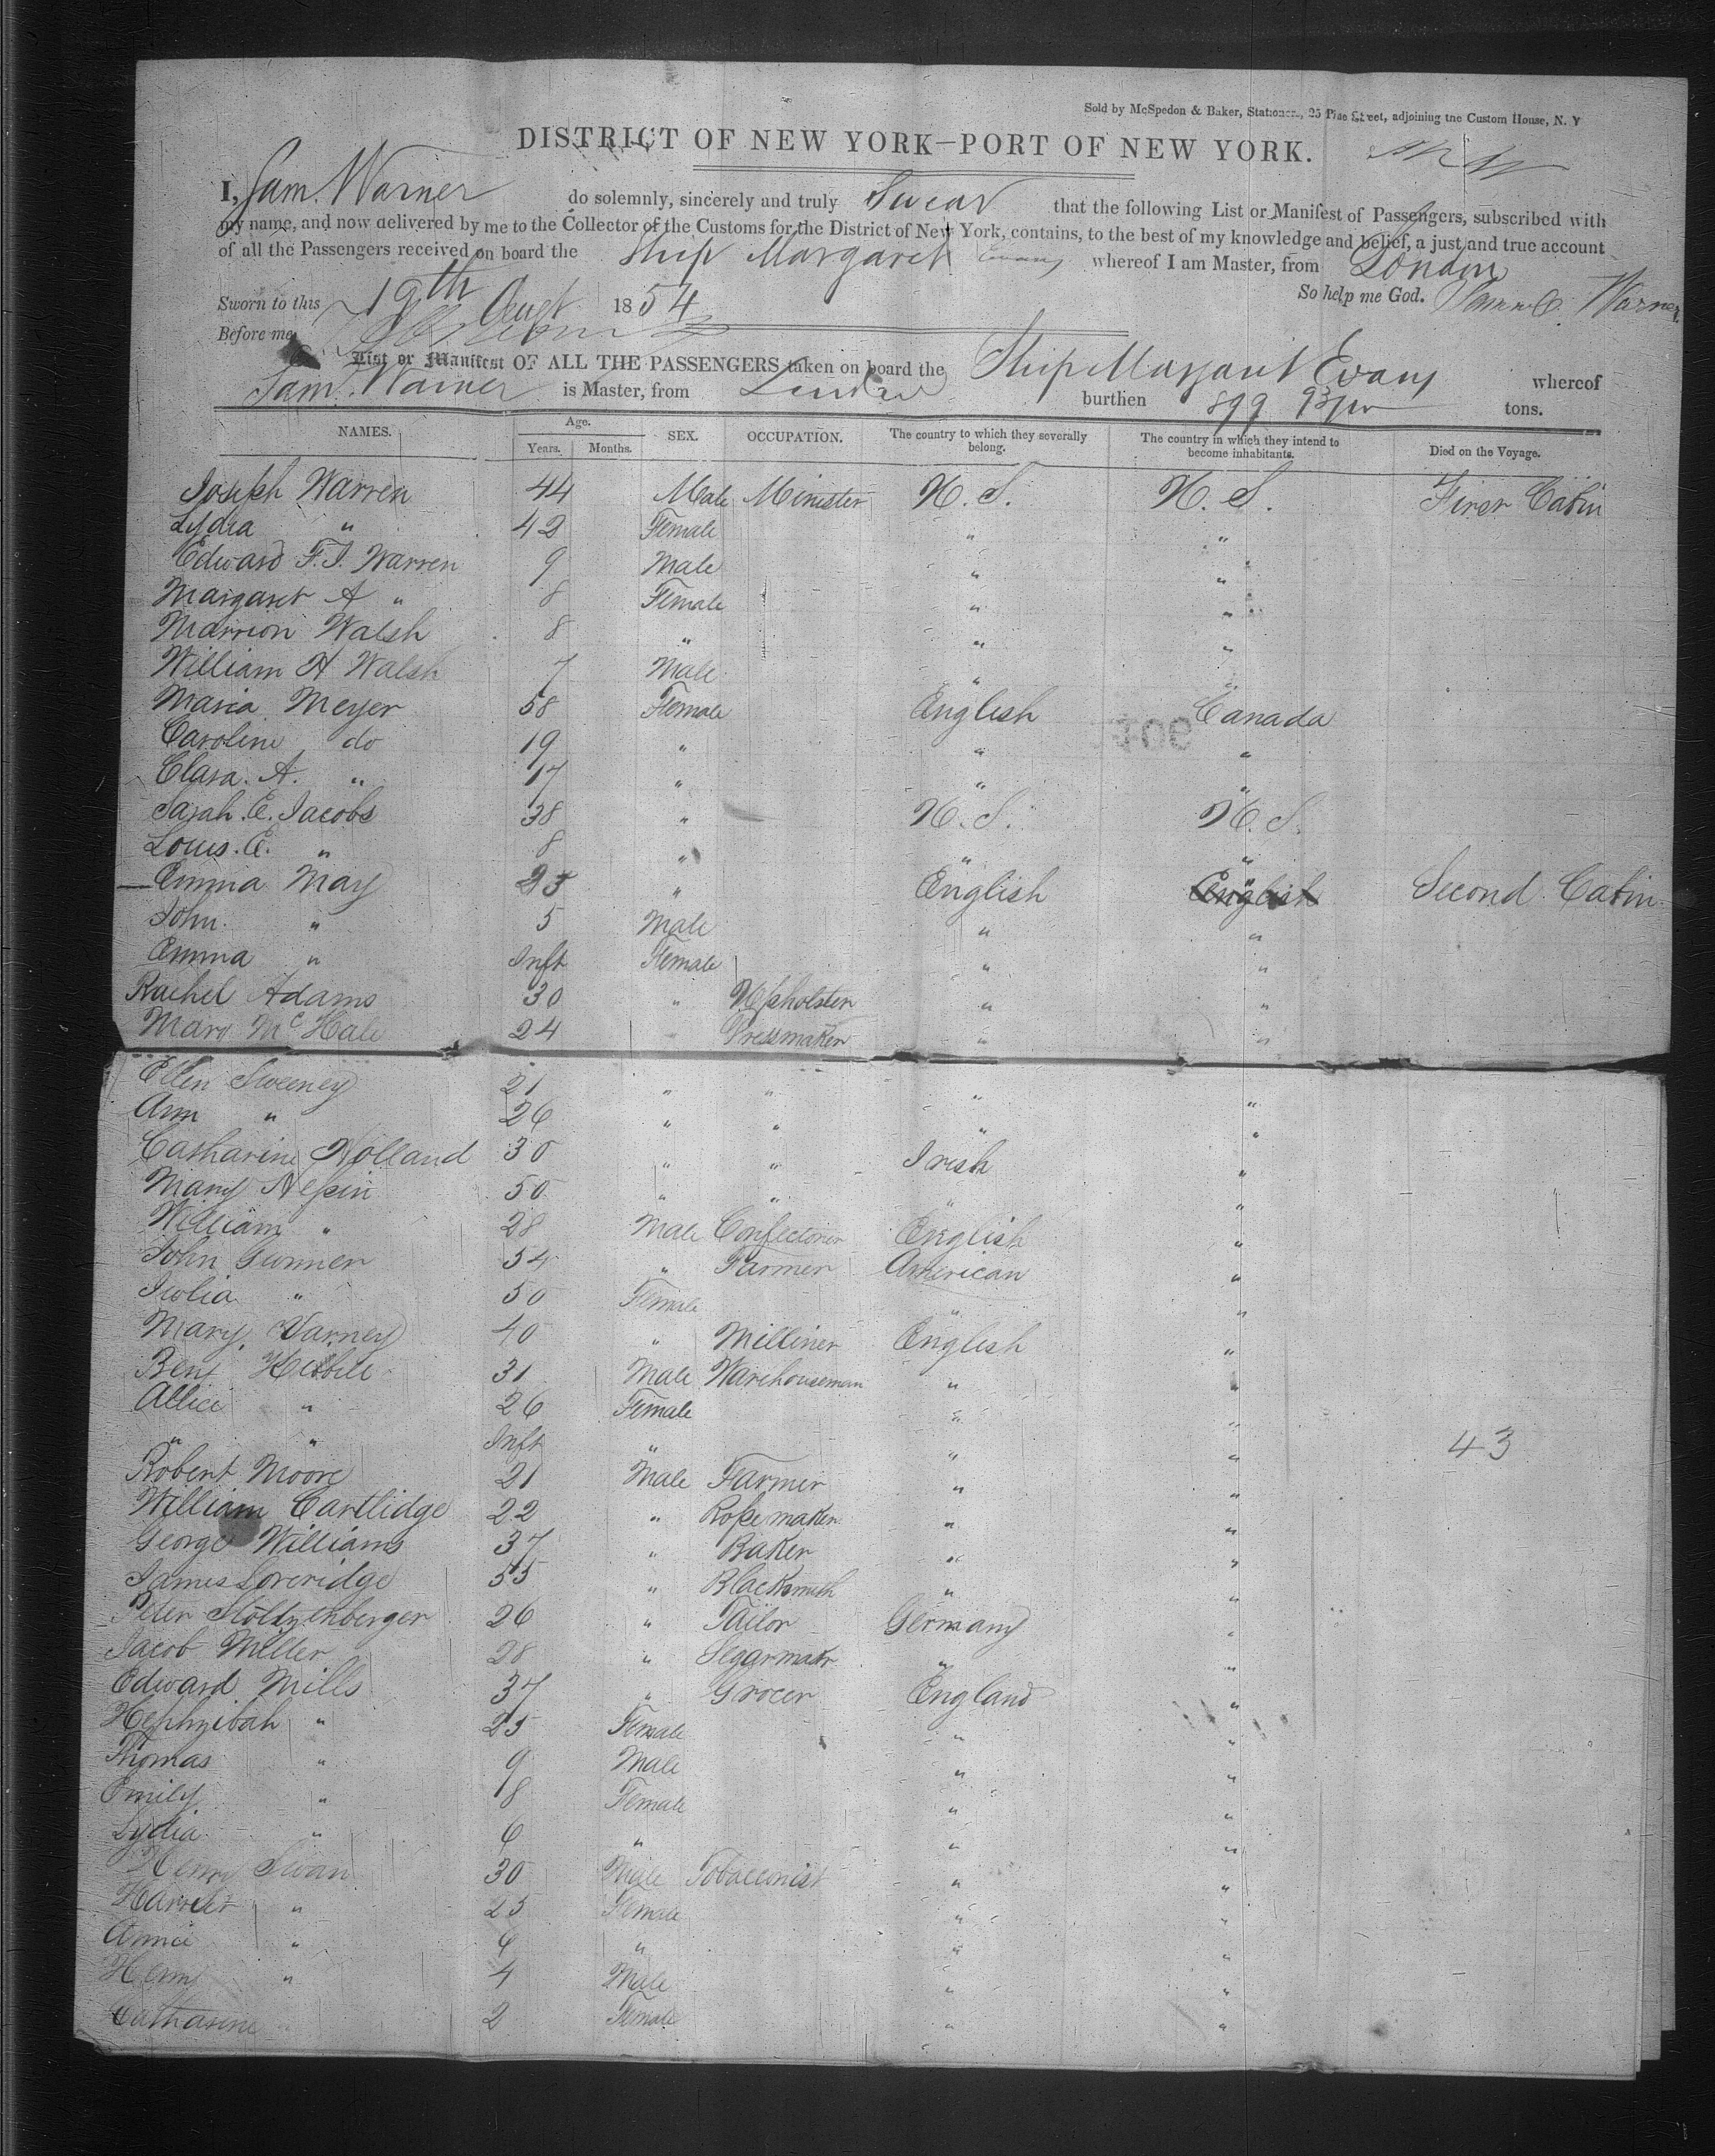 Sold by McSpedon & Baker, Stationers, 25 Pine Street, adjoining the Custom House, N. Y
DISTRICT OF NEW YORK—PORT OF NEW YORK.
I, Sam. Warner do solemnly, sincerely and truly Swear that the following List or Manifest of Passengers, subscribed with
my name, and now delivered by me to the Collector of the Customs for the District of New York, contains, to the best of my knowledge and belief, a just and true account
of all the Passengers received on board the Ship Margaret Evans whereof I am Master, from London
So help me God. Warner
Sworn to this 19th Augt 1854
Before me
List or Manifest OF ALL THE PASSENGERS taken on board the Ship Margaret Evans whereof
Sam. Warner is Master, from London burthen 899 tons.
NAMES. Age. Years. Months. SEX. OCCUPATION. The country to which they severally belong. The country in which they intend to become inhabitants. Died on the Voyage.
Joseph Warren 44 Male Minister U. S. U. S. First Cabin
Lydia " 42 Female " "
Edward F. J. Warren 9 Male " "
Margaret A " 8 Female " "
Marrion Walsh 8 " " "
William H Walsh 7 Male " "
Maria Meyer 58 Female English Canada
Caroline do 19 " " "
Clara. A. " 17 " " "
Sarah. E. Jacobs 38 " U. S. U. S.
Louis. E. " 8 " " "
Emma May 25 " English English Second Cabin
John. " 5 Male " "
Emma " Inft Female " "
Rachel Adams 30 " Upholster " "
Mary McHale 24 " Dressmaker " "
Ellen Sweeney 21 " " " "
Ann " 26 " " " "
Catharine Holland 30 " " Irish "
Mary 50 " " " "
William " 28 Male Confectioner English "
John Gunner 54 " Farmer American "
Julia " 50 Female " "
Mary Varney 40 " Milliner English "
Benj 31 Male Warehouseman " "
Allice " 26 Female " "
" " Inft " " "
43
Robert Moore 21 Male Farmer " "
William Cartlidge 22 " Ropemaker " "
George Williams 37 " Baker " "
James Loveridge 55 " Blacksmith " "
Peter Stoltzenberger 26 " Tailor Germany "
Jacob Miller 28 " Segarmakr " "
Edward Mills 37 " Grocer England "
Hephzibah " 25 Female " "
Thomas " 9 Male " "
Emily " 8 Female " "
Lydia " 6 " " "
Henry Swan 30 Male Tobacconist " "
Harriet " 25 Female " "
Annie " 6 " " "
Henry " 4 Male " "
Catharine 2 Female " "